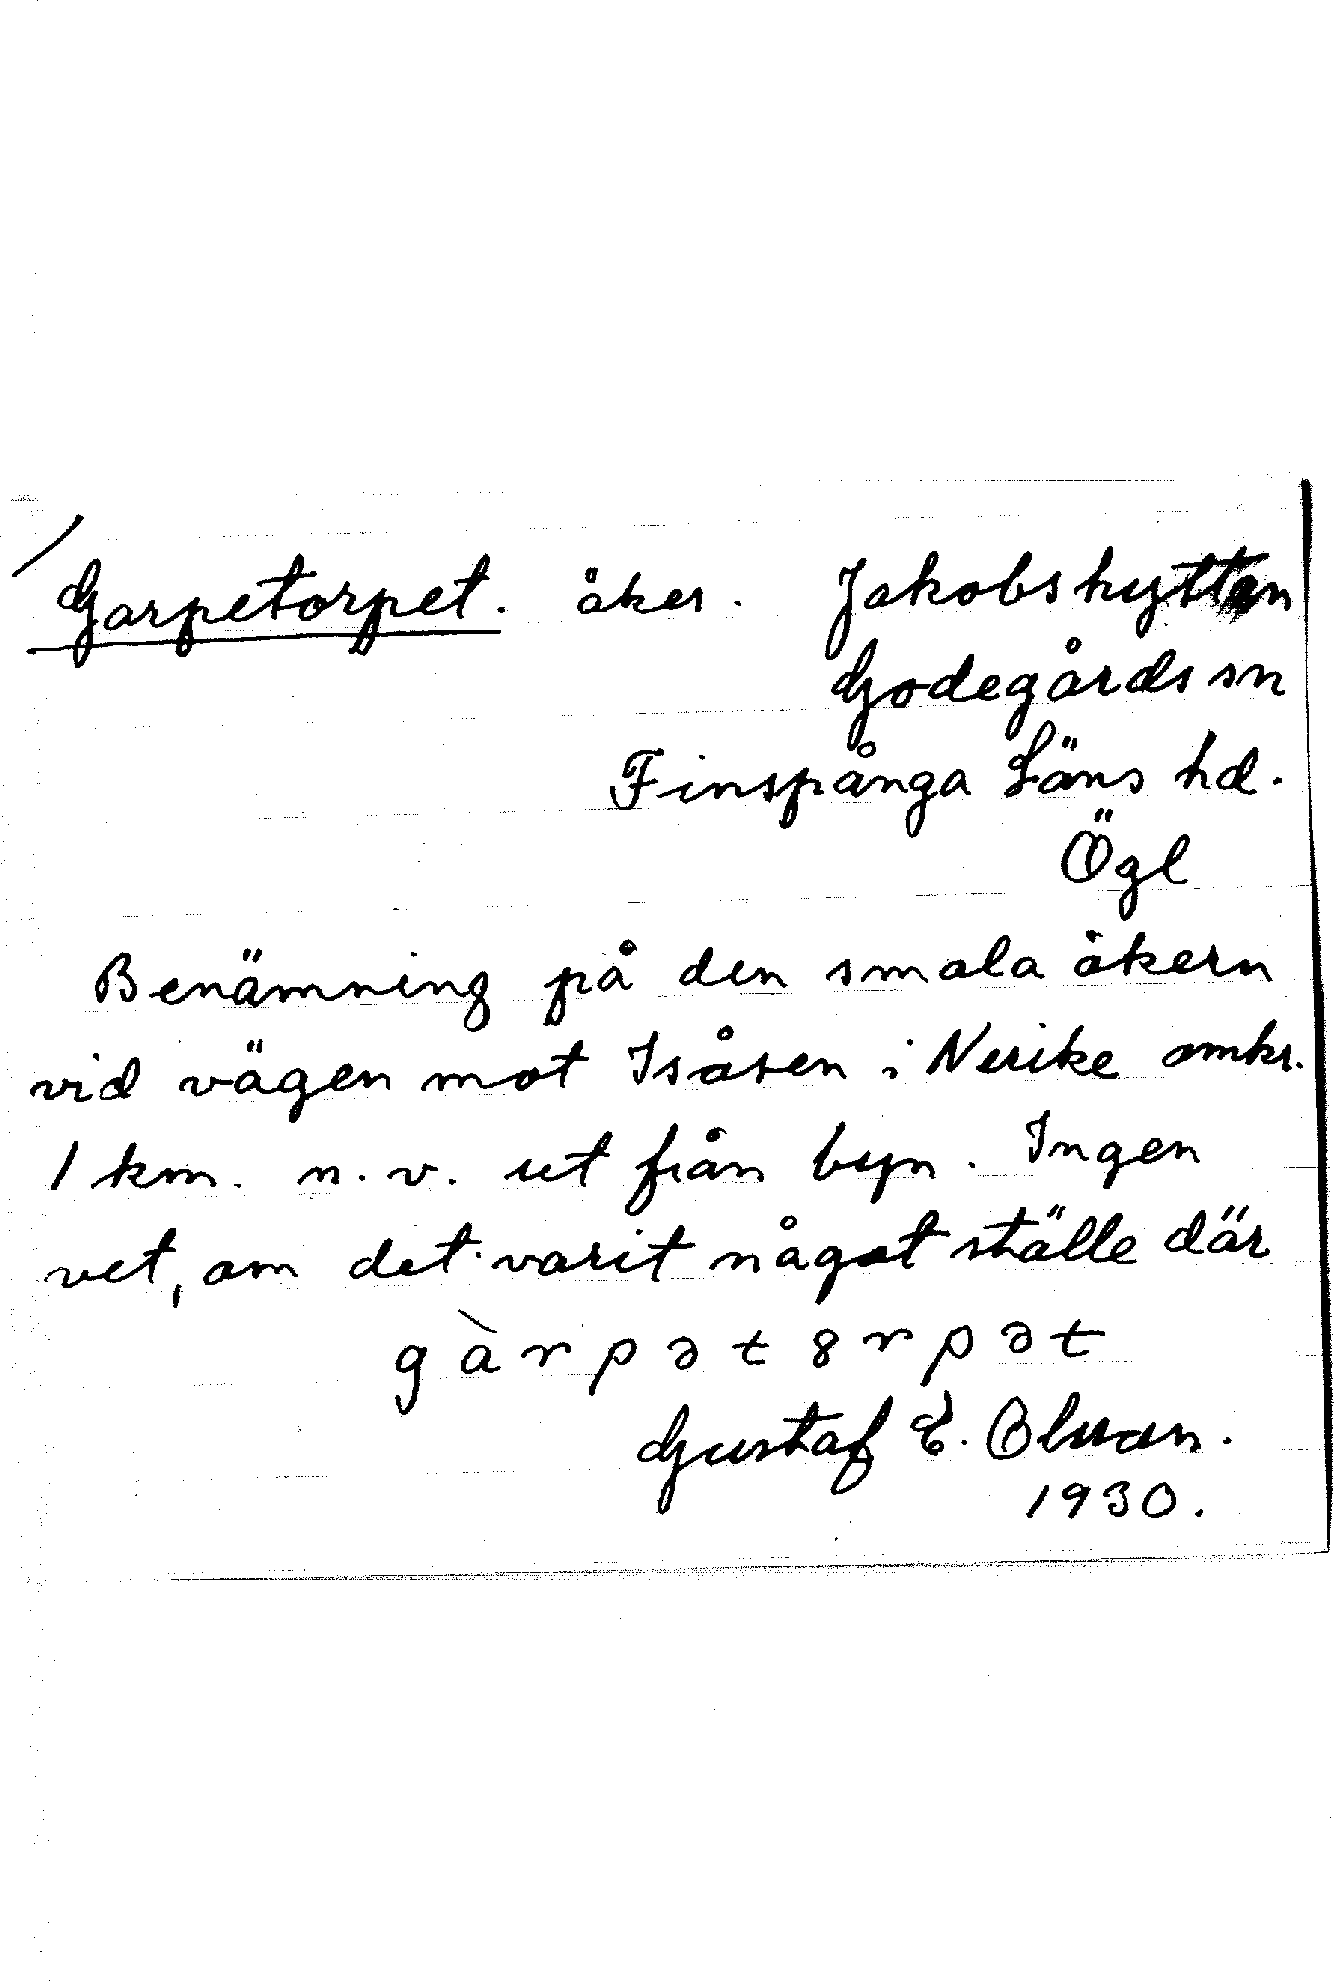 Garpetorpet. åker. Jakobshyttan
Godegårds sn
Finspånga Läns hd.
Ögl
Benämning på den smala åkern
vid vägen mot Isåsen i Nerike omkr.
1 km. n.v. ut från byn. Ingen
vet, om det varit något ställe där
gàrpətȣrpət
Gustaf E. Olsson.
1930.